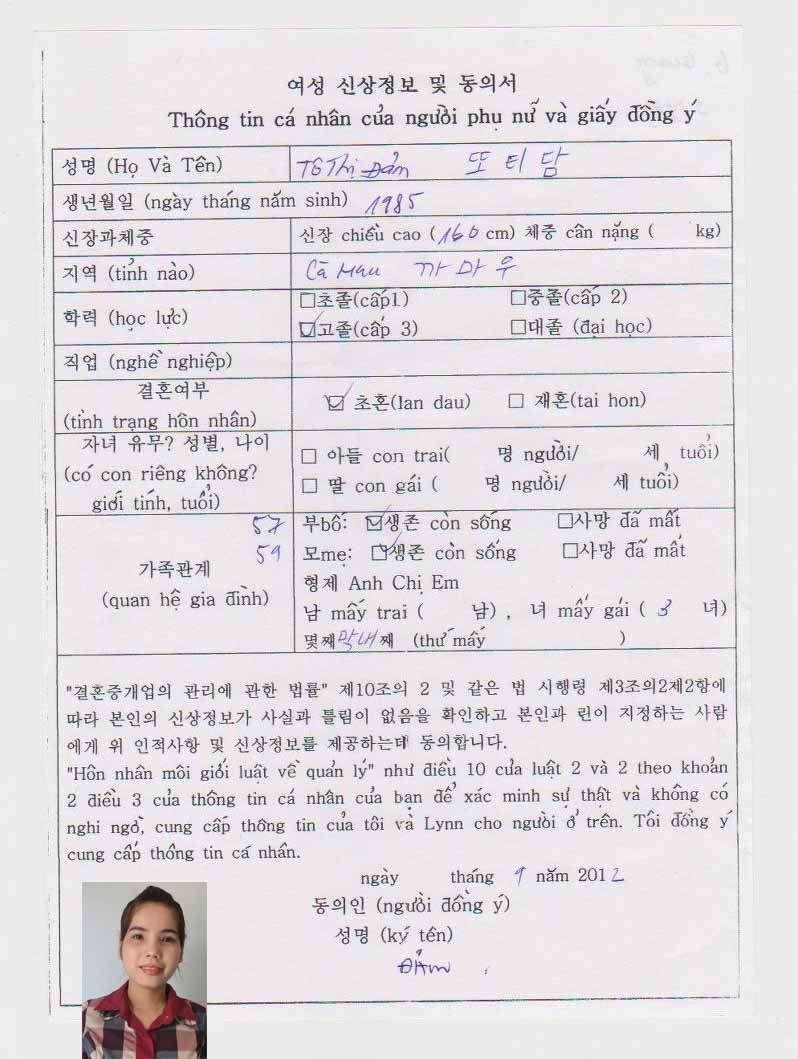 여성 신상정보 및 동의서
Thông tin cá nhân của người phụ nữ và giấy đồng ý
성명 (Họ Và Tên) Tô Thị Đảm 또 티 담
생년월일 (ngày tháng năm sinh) 1985
신장과체중 신장 chiều cao (160 cm) 체중 cân nặng ( kg)
지역 (tỉnh nào) Cà Mau 까 마 우
학력 (học lực) □초졸(cấp1) □중졸(cấp 2)
☑고졸(cấp 3) □대졸 (đại học)
직업 (nghề nghiệp)
결혼여부
(tỉnh trạng hôn nhân) ☑ 초혼(lan dau) □ 재혼(tai hon)
자녀 유무? 성별, 나이
(có con riêng không?
giới tính, tuổi)
□ 아들 con trai( 명 người/ 세 tuổi)
□ 딸 con gái ( 명 người/ 세 tuổi)
가족관계
(quan hệ gia đình)
57 부bố: ☑생존 còn sống □사망 đã mất
59 모mẹ: ☑생존 còn sống □사망 đã mất
형제 Anh Chị Em
남 mấy trai ( 남) , 녀 mấy gái ( 3 녀)
몇째막내째 (thứ mấy )
"결혼중개업의 관리에 관한 법률" 제10조의 2 및 같은 법 시행령 제3조의2제2항에
따라 본인의 신상정보가 사실과 틀림이 없음을 확인하고 본인과 린이 지정하는 사람
에게 위 인적사항 및 신상정보를 제공하는데 동의합니다.
"Hôn nhân môi giới luật về quản lý" như điều 10 của luật 2 và 2 theo khoản
2 điều 3 của thông tin cá nhân của bạn để xác minh sự thật và không có
nghi ngờ, cung cấp thông tin của tôi và Lynn cho người ở trên. Tôi đồng ý
cung cấp thông tin cá nhân.
ngày tháng 9 năm 2012
동의인 (người đồng ý)
성명 (ký tên)
Đảm